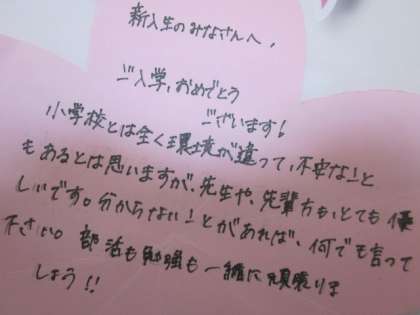 新入生のみなさんへ、
ご入学、おめでとう
ございます！
小学校とは全く環境が違って、不安なこと
もあるとは思いますが、先生や、先輩方も、とても優
しいです。分からないことがあれば、何でも言って
下さい。部活も勉強も一緒に頑張りま
しょう！！